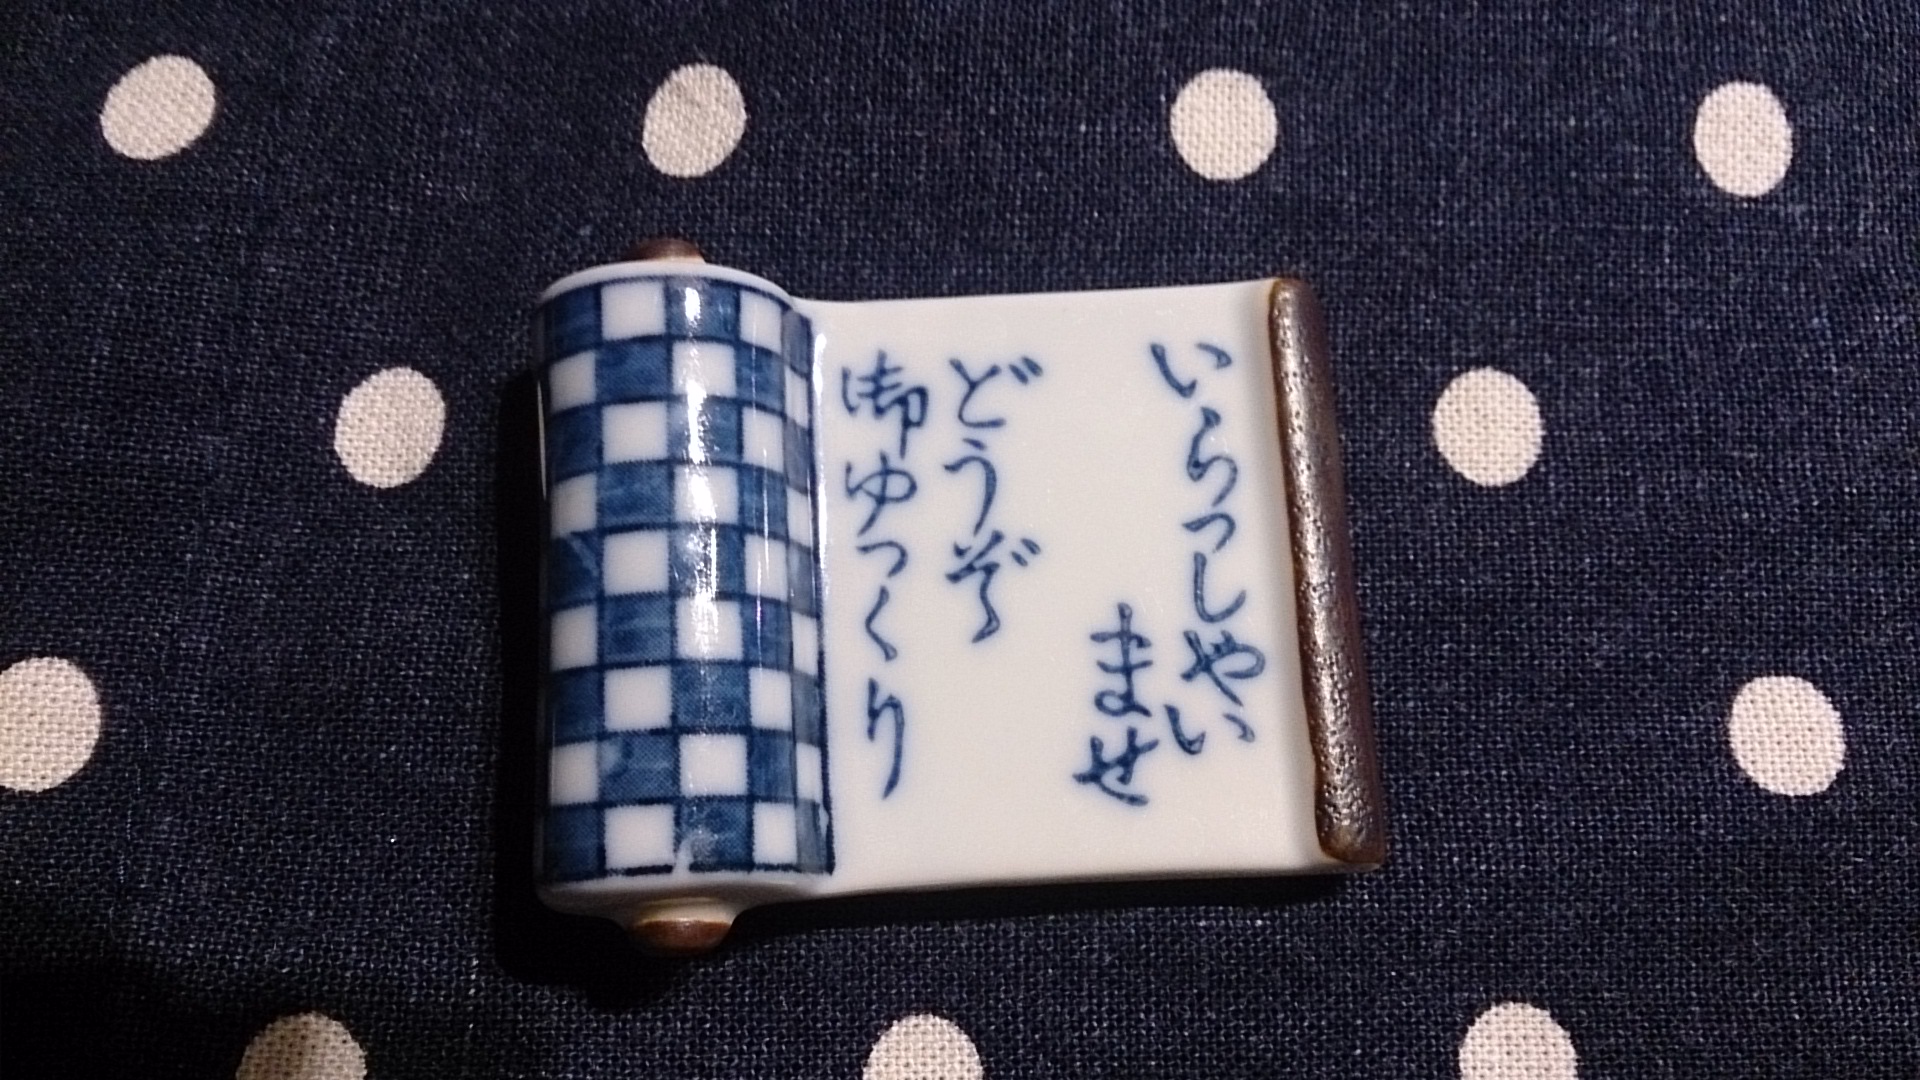 いらっしゃい
ませ
どうぞ
御ゆっくり